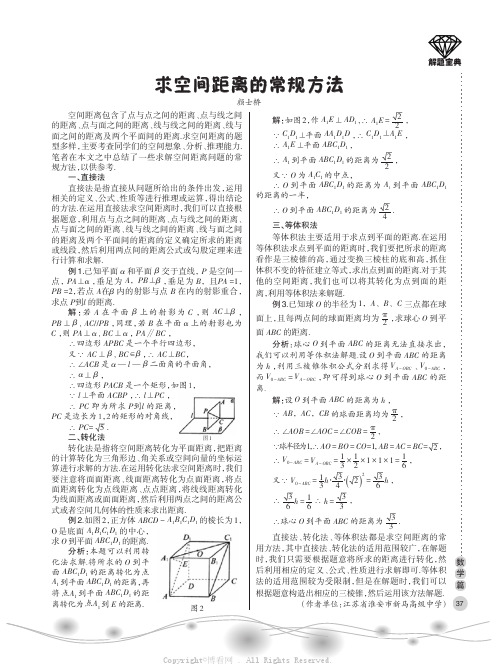 解题宝典
求空间距离的常规方法
颜士桥
空间距离包含了点与点之间的距离、点与线之间
的距离、点与面之间的距离、线与线之间的距离、线与
面之间的距离及两个平面间的距离.求空间距离的题
型多样,主要考查同学们的空间想象、分析、推理能力.
笔者在本文之中总结了一些求解空间距离问题的常
规方法,以供参考.
一、直接法
直接法是指直接从问题所给出的条件出发,运用
相关的定义、公式、性质等进行推理或运算,得出结论
的方法.在运用直接法求空间距离时,我们可以直接根
据题意,利用点与点之间的距离、点与线之间的距离、
点与面之间的距离、线与线之间的距离、线与面之间
的距离及两个平面间的距离的定义确定所求的距离
或线段,然后利用两点间的距离公式或勾股定理来进
行计算和求解.
例1.已知平面α和平面β交于直线l,P是空间一
点,PA⊥α,垂足为A,PB⊥β,垂足为B,且PA=1,
PB=2,若点A在β内的射影与点B在α内的射影重合,
求点P到l的距离.
解:若A在平面β上的射影为C,则AC⊥β,
PB⊥β,AC//PB,同理,若B在平面α上的射影也为
C,则PA⊥α,BC⊥α,PA∥BC,
∴四边形APBC是一个平行四边形,
又∵AC⊥β,BC⊂β,∴AC⊥BC,
∴∠ACB是α—l—β二面角的平面角,
∴α⊥β,
∴四边形PACB是一个矩形,如图1,
∵l⊥平面ACBP,∴l⊥PC,
∴PC即为所求P到l的距离,
PC是边长为1,2的矩形的对角线,
∴PC=√5.
图1
二、转化法
转化法是指将空间距离转化为平面距离,把距离
的计算转化为三角形边、角关系或空间向量的坐标运
算进行求解的方法.在运用转化法求空间距离时,我们
要注意将面面距离、线面距离转化为点面距离,将点
面距离转化为点线距离、点点距离,将线线距离转化
为线面距离或面面距离,然后利用两点之间的距离公
式或者空间几何体的性质来求出距离.
例2.如图2,正方体ABCD-A₁B₁C₁D₁的棱长为1,
O是底面A₁B₁C₁D₁的中心,
求O到平面ABC₁D₁的距离.
分析:本题可以利用转
化法求解.将所求的O到平
面ABC₁D₁的距离转化为点
A₁到平面ABC₁D₁的距离,再
将点A₁到平面ABC₁D₁的距
离转化为点A₁到E的距离.
图2
解:如图2,作A₁E⊥AD₁,∴A₁E=√2/2,
∵C₁D₁⊥平面AA₁D₁D,∴C₁D₁⊥A₁E,
∴A₁E⊥平面ABC₁D₁,
∴A₁到平面ABC₁D₁的距离为√2/2,
又∵O为A₁C₁的中点,
∴O到平面ABC₁D₁的距离为A₁到平面ABC₁D₁
的距离的一半,
∴O到平面ABC₁D₁的距离为√2/4.
三、等体积法
等体积法主要适用于求点到平面的距离.在运用
等体积法求点到平面的距离时,我们要把所求的距离
看作是三棱锥的高,通过变换三棱柱的底和高,抓住
体积不变的特征建立等式,求出点到面的距离.对于其
他的空间距离,我们也可以将其转化为点到面的距
离,利用等体积法来解题.
例3.已知球O的半径为1,A、B、C三点都在球
面上,且每两点间的球面距离均为π/2,求球心O到平
面ABC的距离.
分析:球心O到平面ABC的距离无法直接求出,
我们可以利用等体积法解题.设O到平面ABC的距离
为h,利用三棱锥体积公式分别求得V_{A-OBC}、V_{O-ABC},
而V_{O-ABC}=V_{A-OBC},即可得到球心O到平面ABC的距
离.
解:设O到平面ABC的距离为h,
∵AB,AC,CB的球面距离均为π/2,
∴∠AOB=∠AOC=∠COB=π/2,
∵球半径为1,∴AO=BO=CO=1,AB=AC=BC=√2,
∴V_{O-ABC}=V_{A-OBC}=1/3×1/2×1×1×1=1/6,
又∵V_{O-ABC}=1/3h·√3/4·(√2)²=√3/6h,
∴√3/6h=1/6 ∴h=√3/3,
∴球心O到平面ABC的距离为√3/3.
直接法、转化法、等体积法都是求空间距离的常
用方法,其中直接法、转化法的适用范围较广,在解题
时,我们只需要根据题意将所求的距离进行转化,然
后利用相应的定义、公式、性质进行求解即可.等体积
法的适用范围较为受限制,但是在解题时,我们可以
根据题意构造出相应的三棱锥,然后运用该方法解题.
(作者单位:江苏省淮安市新马高级中学)
数学篇
37
Copyright©博看网 . All Rights Reserved.